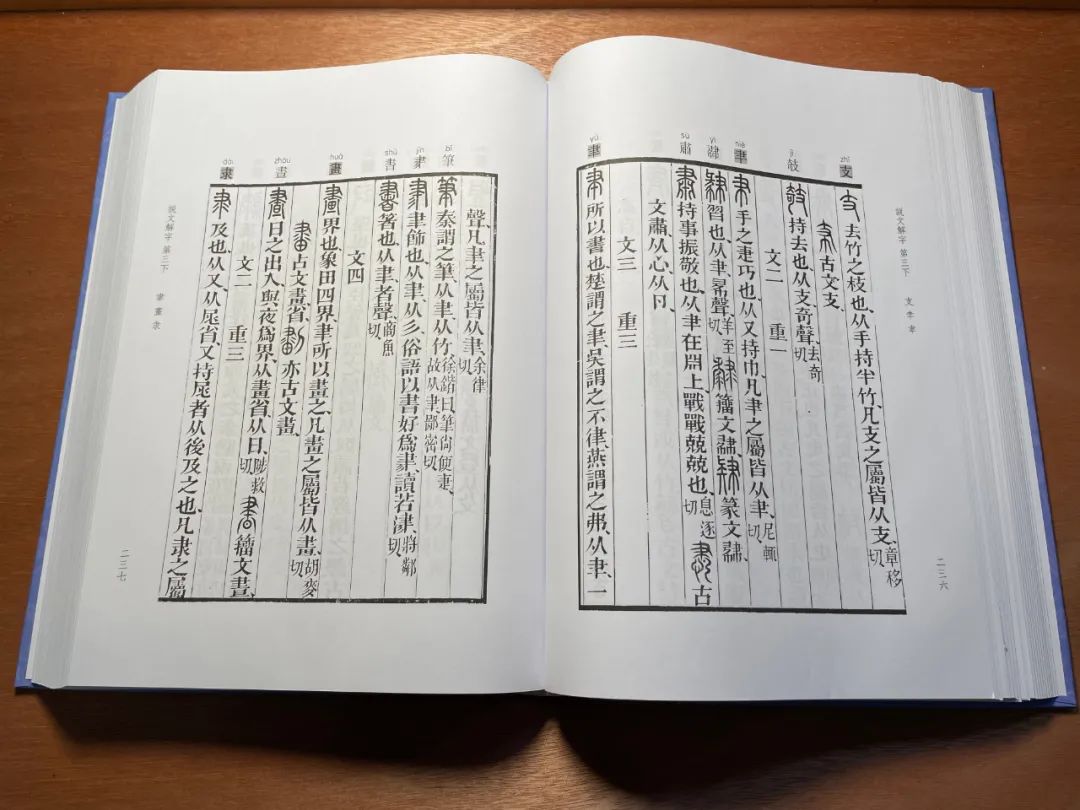 説文解字 第三下
支 𦘒 聿
二三六
zhī 支
支 去竹之枝也、从手持半竹、凡支之屬皆从支、章移切
古文支、
攲
攲 持去也、从支奇聲、去奇切
文二 重一
niè 𦘒
𦘒 手之疌巧也、从又持巾、凡𦘒之屬皆从𦘒、尼輒切
yì
習也、从𦘒㣇聲、羊至切 籒文 篆文
sù 肅
肅 持事振敬也、从𦘒在𣶒上、戰戰兢兢也、息逐切 古
文肅、从心从卪、
文三 重三
yù 聿
聿 所以書也、楚謂之聿、吳謂之不律、燕謂之弗、从聿、一
聲、凡聿之屬皆从聿、余律切
bǐ 筆
筆 秦謂之筆、从聿从竹、徐鍇曰筆尚便疌、故从聿、鄙密切
jīn
聿飾也、从聿从彡、俗語以書好爲、讀若津、將鄰切
shū 書
書 箸也、从聿、者聲、商魚切
文四
huà 畫
畫 界也、象田四界、聿所以畫之、凡畫之屬皆从畫、胡麥切
古文畫省、 亦古文畫、
zhòu 晝
晝 日之出入、與夜爲界、从畫省、从日、陟救切 籒文晝、
文二 重三
dài 隶
隶 及也、从又、从尾省、又持尾者、从後及之也、凡隶之屬
説文解字 第三下
聿 畫 隶
二三七